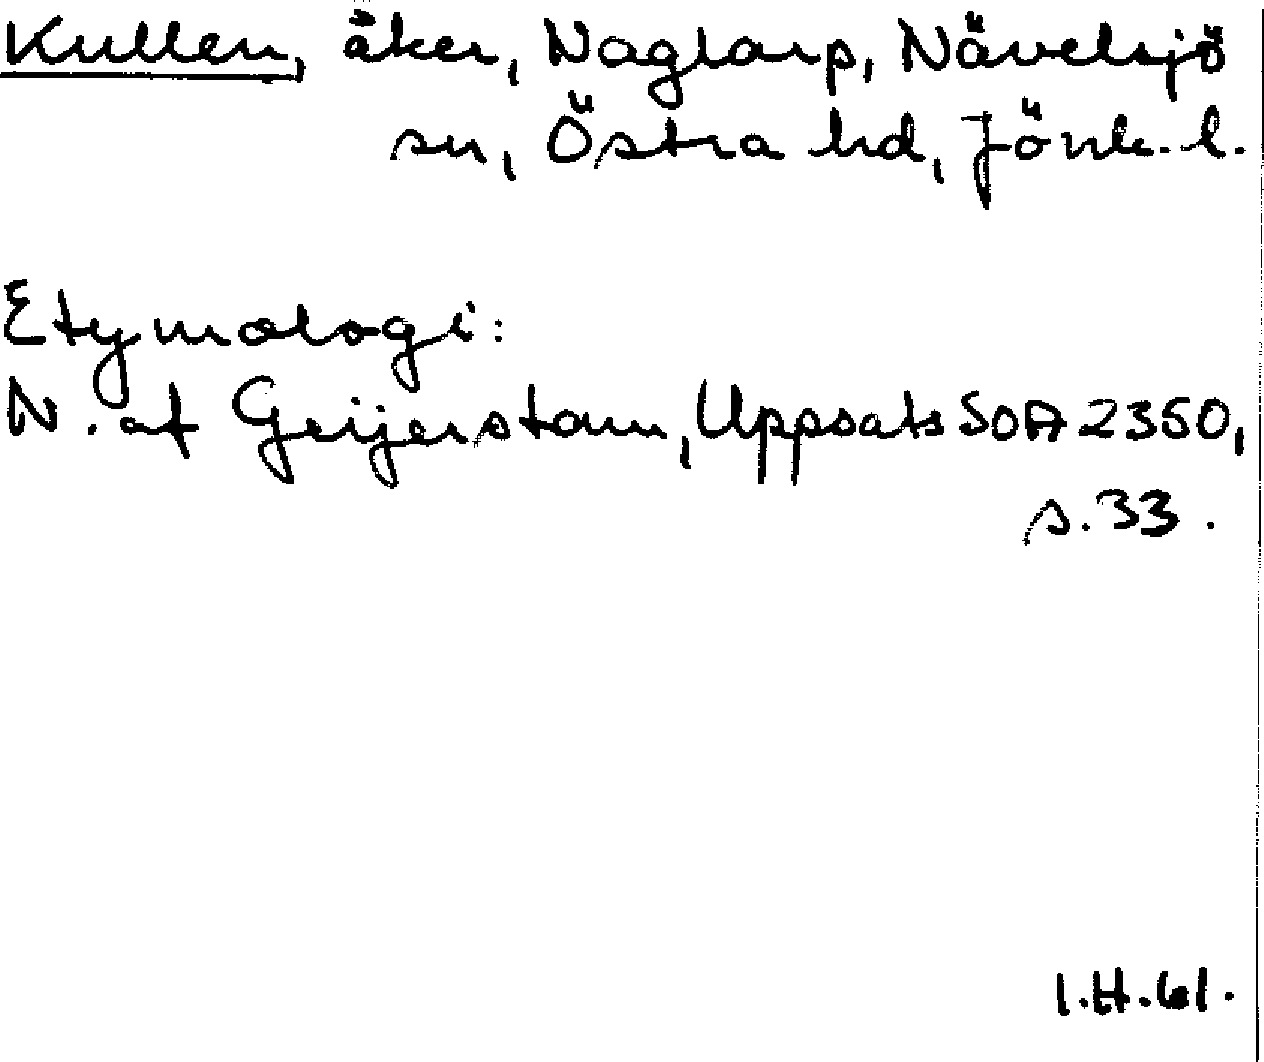 Kullen, åker, Naglarp, Nävelsjö
sn, Östra hd, Jönk. l.
Etymologi:
N. af Geijerstam, Uppsats SOA 2350,
s. 33.
I.H.61.